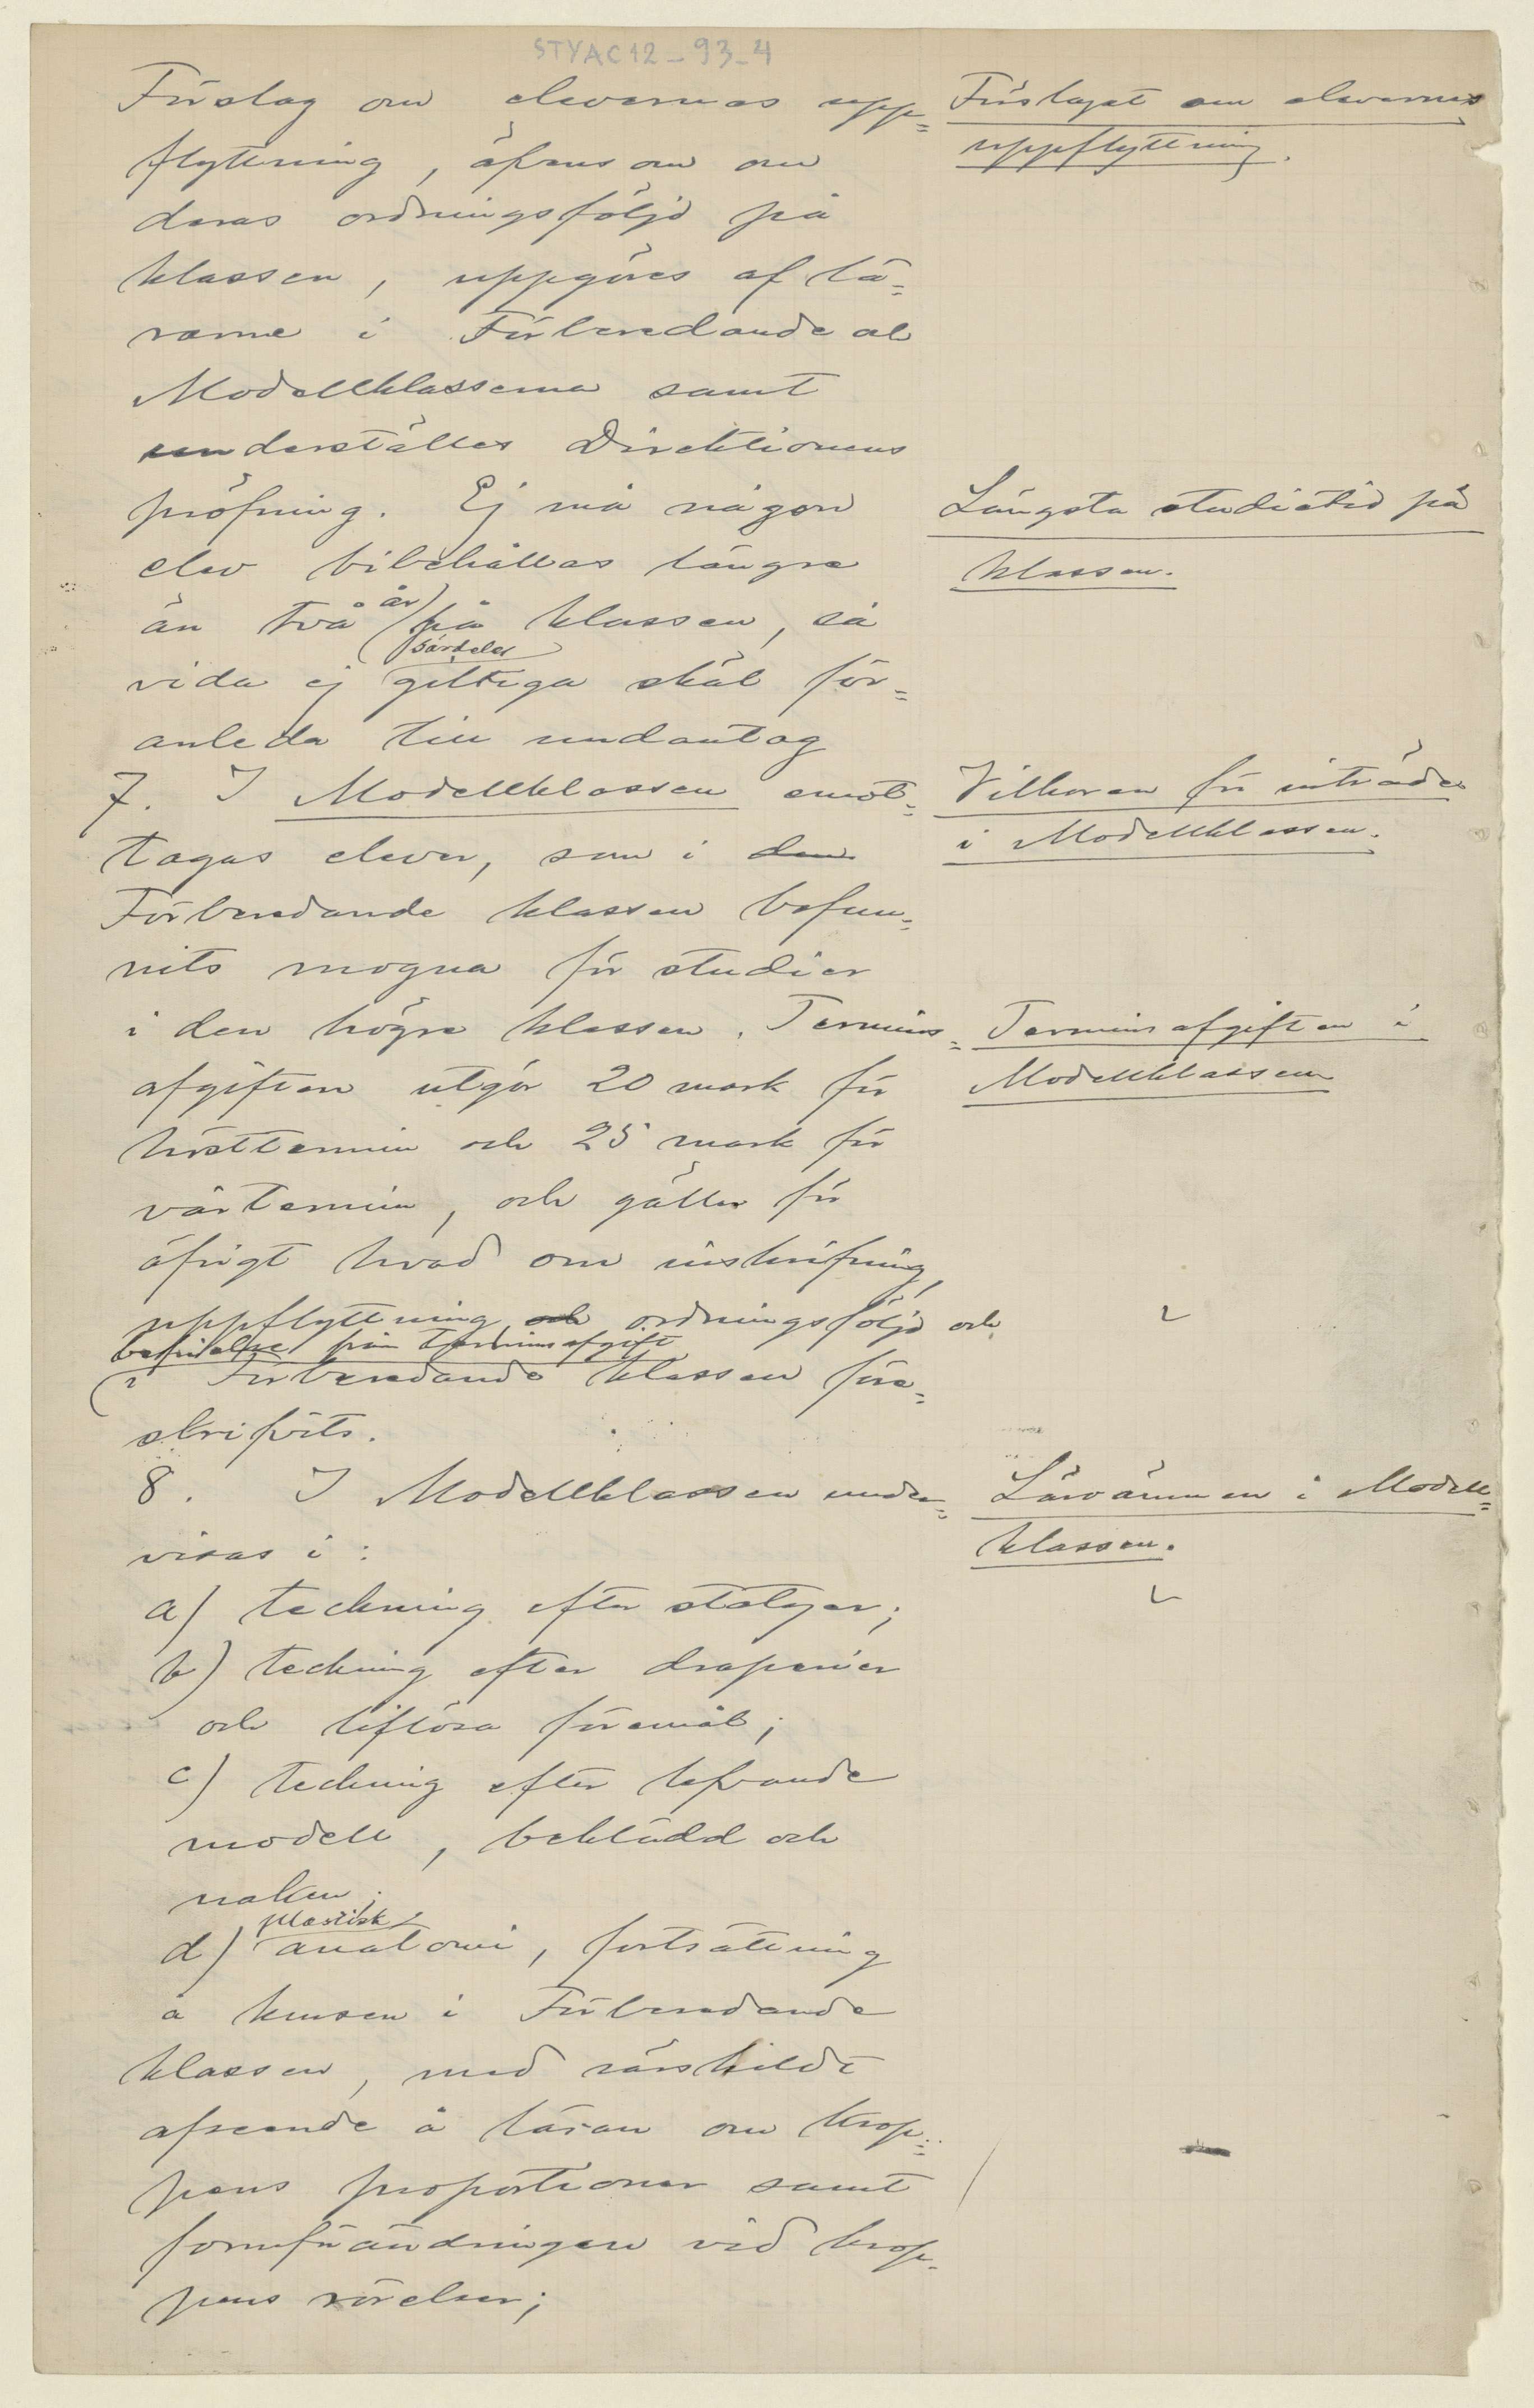 STYAC12-93-4
Förslag om elevernas upp=
flyttning, äfvensom om
deras ordningsföljd på
klassen, uppgöres af lä=
rarne i Förberedande och
Modellklasserna samt
underställes Direktionens
pröfning. Ej må någon
elev bibehållas längre
än två år på klassen, så
vida ej särdeles giltiga skäl för=
anleda till undantag
7. I Modellklassen emot=
tagas elever, som i den
Förberedande klassen befun=
nits mogna för studier
i den högre klassen. Termins=
afgiften utgör 20 mark för
hösttermin och 25 mark för
vårtermin, och gäller för
öfrigt hvad om inskrifning,
uppflyttning och ordningsföljd och
befrielse från terminsafgift
i Förberedande klassen före=
skrifvits.
8. I Modellklassen under=
visas i:
a) teckning efter statyer;
b) teckning efter draperier
och liflösa föremål;
c) teckning efter lefvande
modell, beklädd och
naken;
d) plastisk anatomi, fortsättning
å kursen i Förberedande
klassen, med särskildt
afseende å läran om krop=
pens proportioner samt
formförändringen vid krop=
pens rörelser;
Förslaget om elevernas
uppflyttning.
Längsta studietid på
klassen.
Vilkoren för inträde
i Modellklassen.
Terminsafgiften i
Modellklassen
Läroämnen i Modell=
klassen.